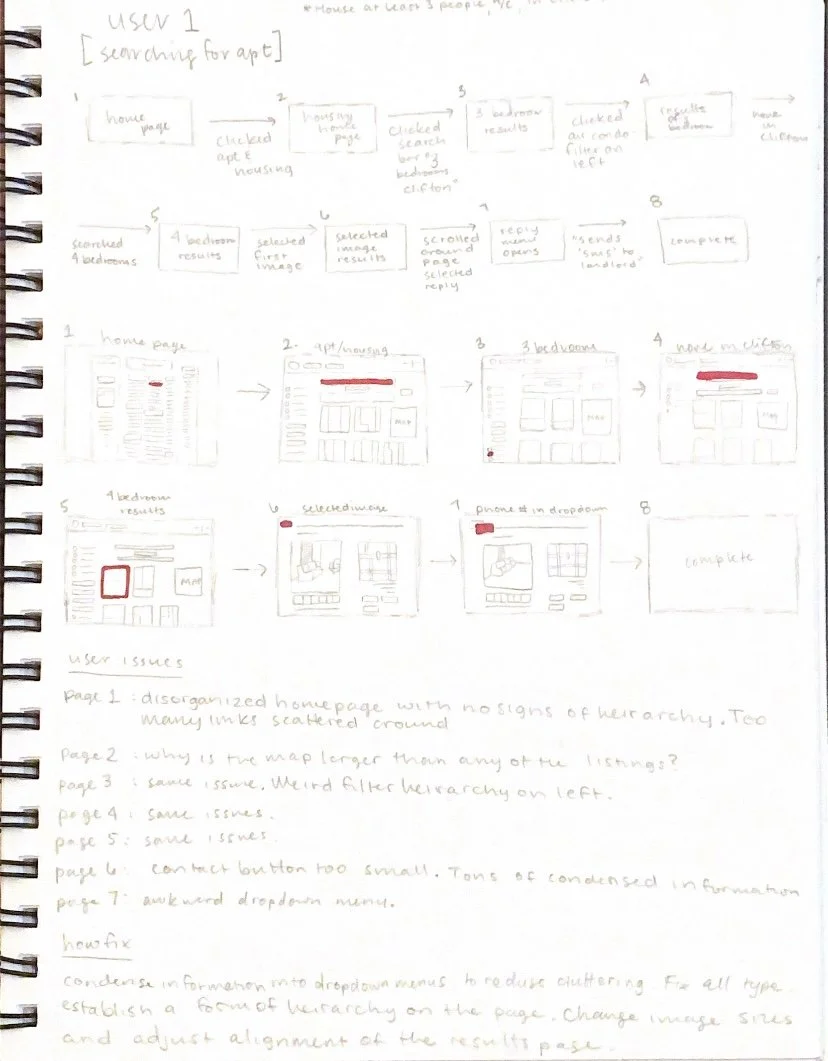 *House at least 3 people, A/C,
user 1
[searching for apt]
1
home
page
clicked
apt &
housing
2
housing
home
page
clicked
search
bar "3
bedrooms
clifton"
3
3 bedroom
results
clicked
on condo
filter on
left
4
results
of bedroom
none
in
clifton
searched
4 bedrooms
5
4 bedroom
results
selected
first
image
6
selected
image
results
scrolled
around
page
selected
reply
7
reply
menu
opens
"sends
'sms' to
landlord"
8
complete
1 home page
2. apt/housing
3 3 bedrooms
4 none in clifton
MAP
MAP
MAP
5 4 bedroom
results
6 selected image
7 phone # in dropdown
8
MAP
complete
user issues
page 1 : disorganized homepage with no signs of heirarchy. Too
many links scattered cround
page 2 : why is the map larger than any of the listings?
page 3 : same issue. Weird filter heirarchy on left.
page 4 : same issues.
page 5: same issues.
page 6: contact button too small. Tons of condensed information
page 7: awkward dropdown menu.
how fix
condense information into dropdown menus to reduse cluttering. Fix all type.
establish a form of heirarchy on the page. Change image sizes
and adjust alignment of the results page.